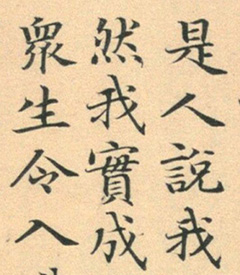 是人說我
然我實成
眾生令入